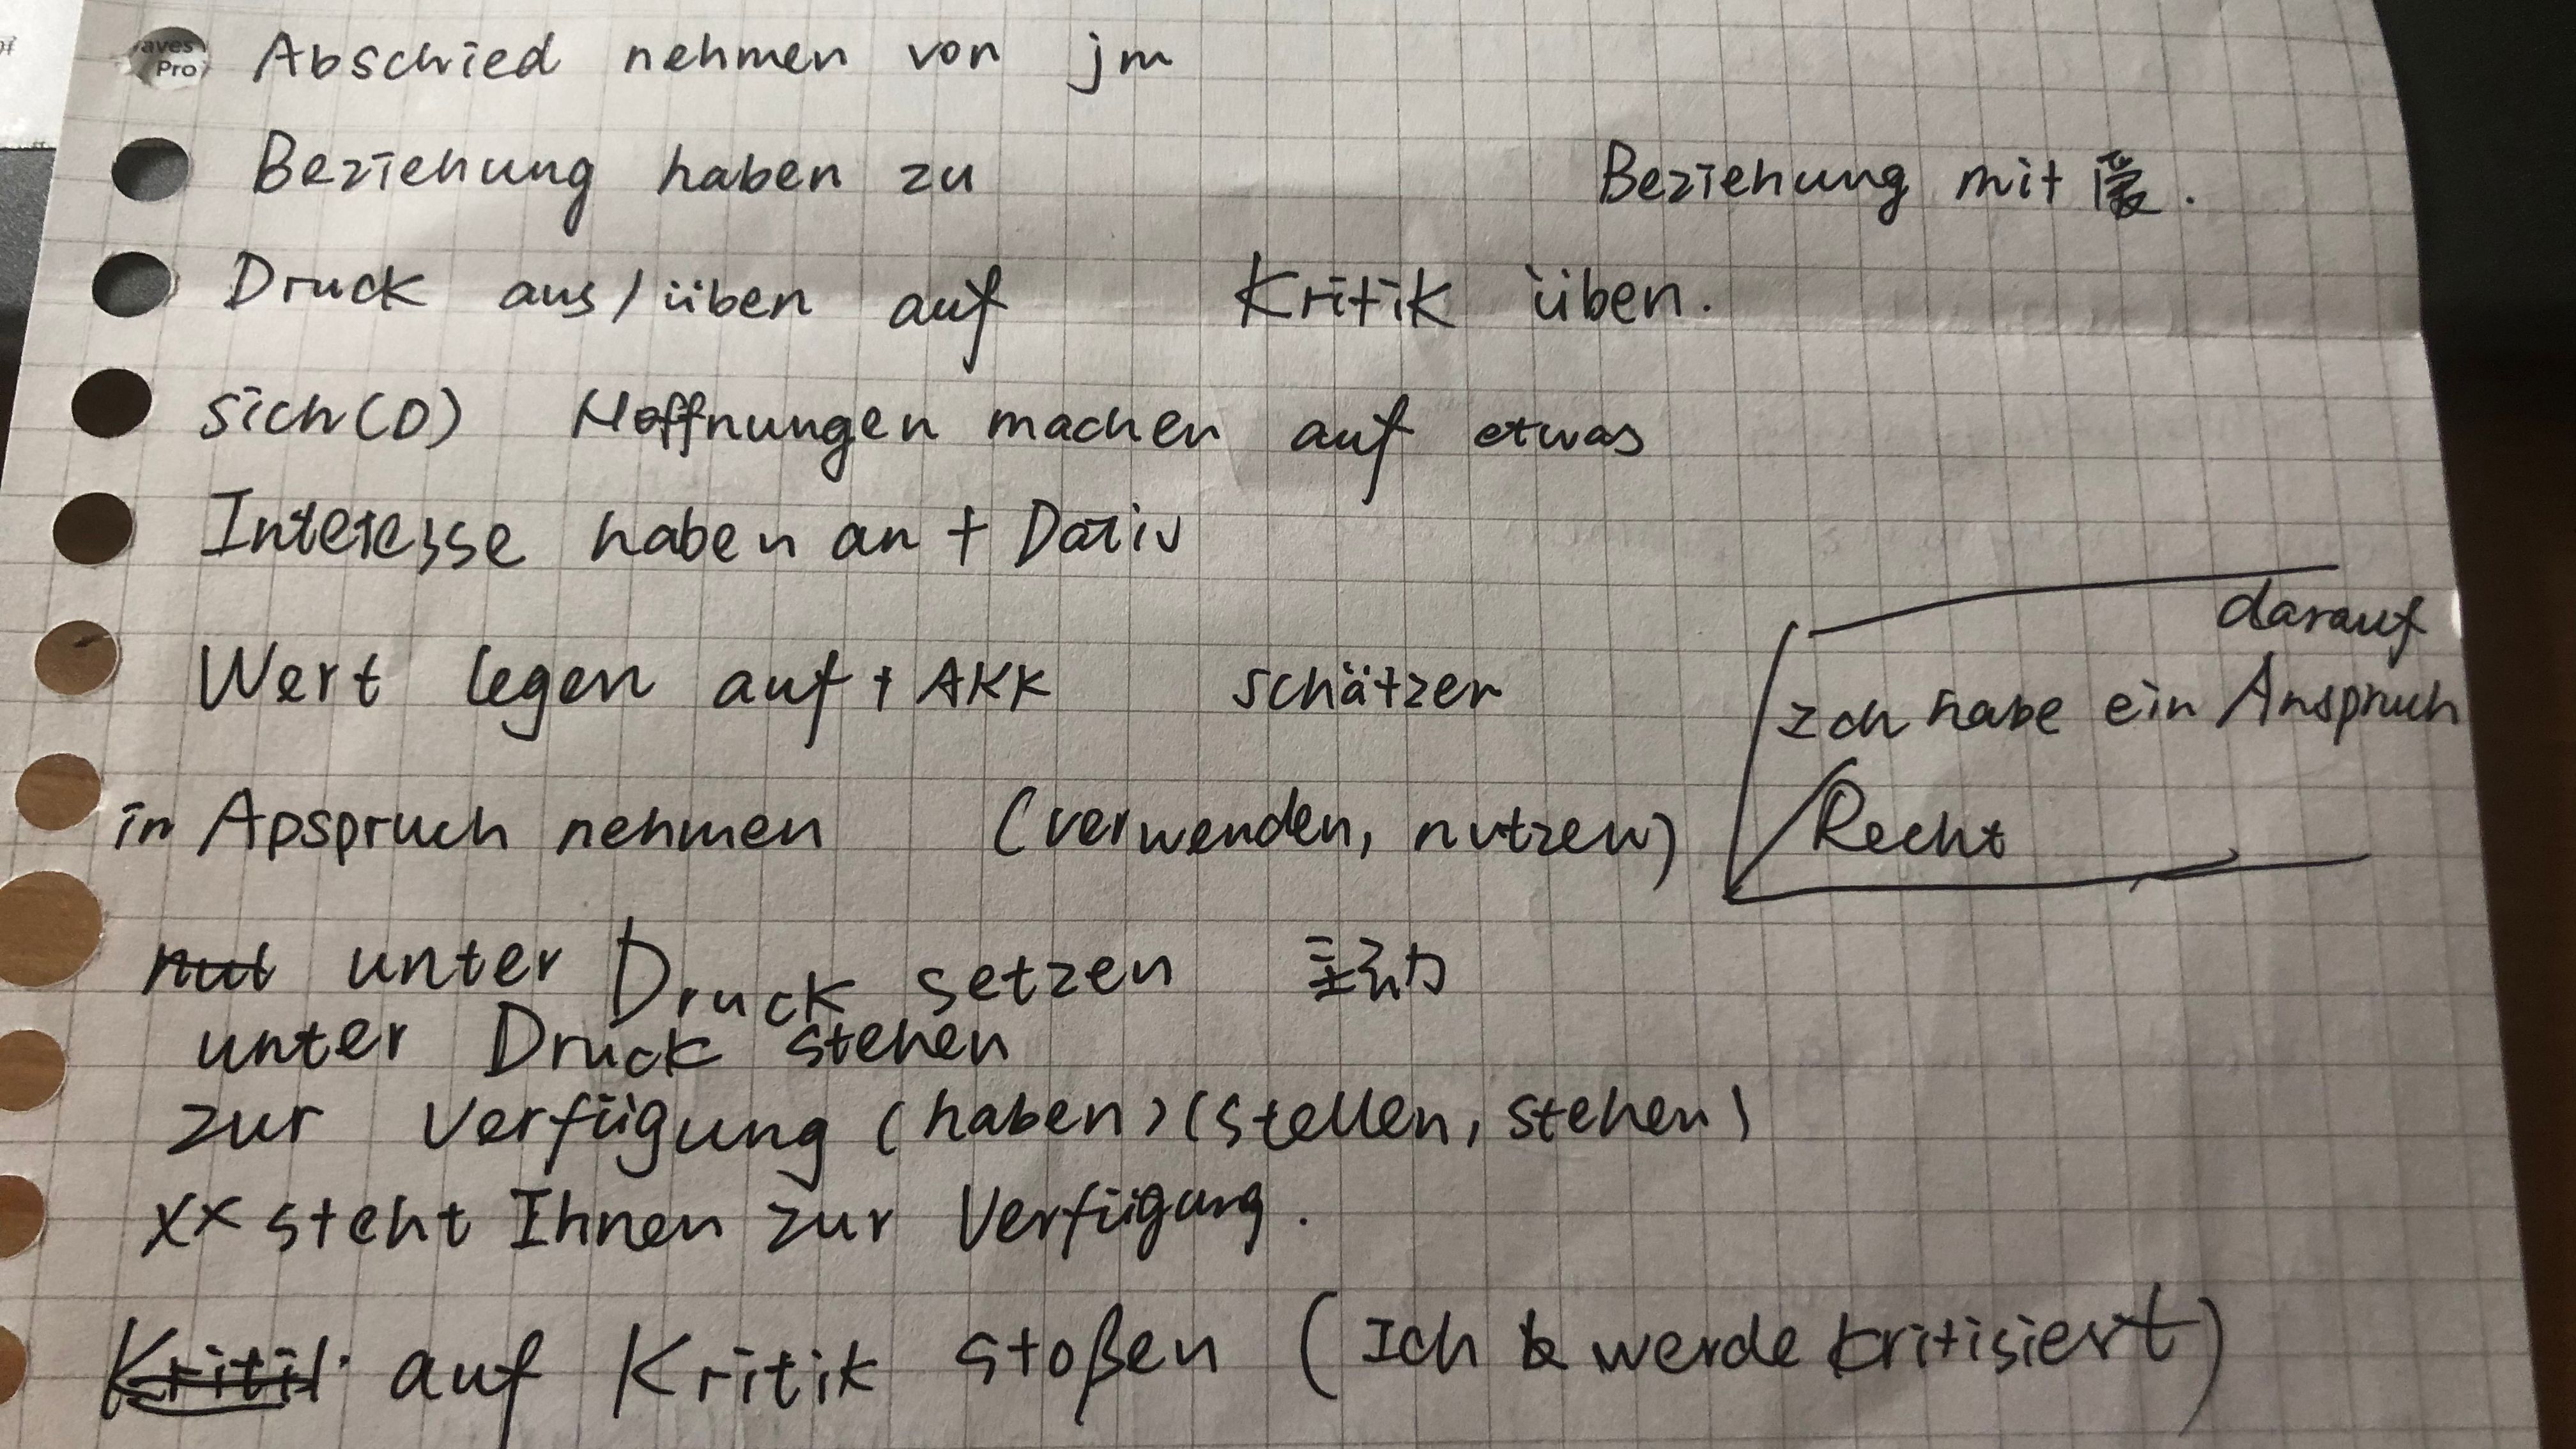 aves
Pro
Abschied nehmen von jm
Beziehung haben zu Beziehung mit 爱.
Druck aus/üben auf Kritik üben.
sich(D) Hoffnungen machen auf etwas
Interesse haben an + Dativ
Wert legen auf + AKK schätzen
darauf
Ich habe ein Anspruch
Recht
in Apspruch nehmen (verwenden, nutzen)
unter Druck setzen 主动
unter Druck stehen
zur Verfügung (haben) (stellen, stehen)
xx steht Ihnen zur Verfügung.
Kritik auf Kritik stoßen (Ich werde kritisiert)